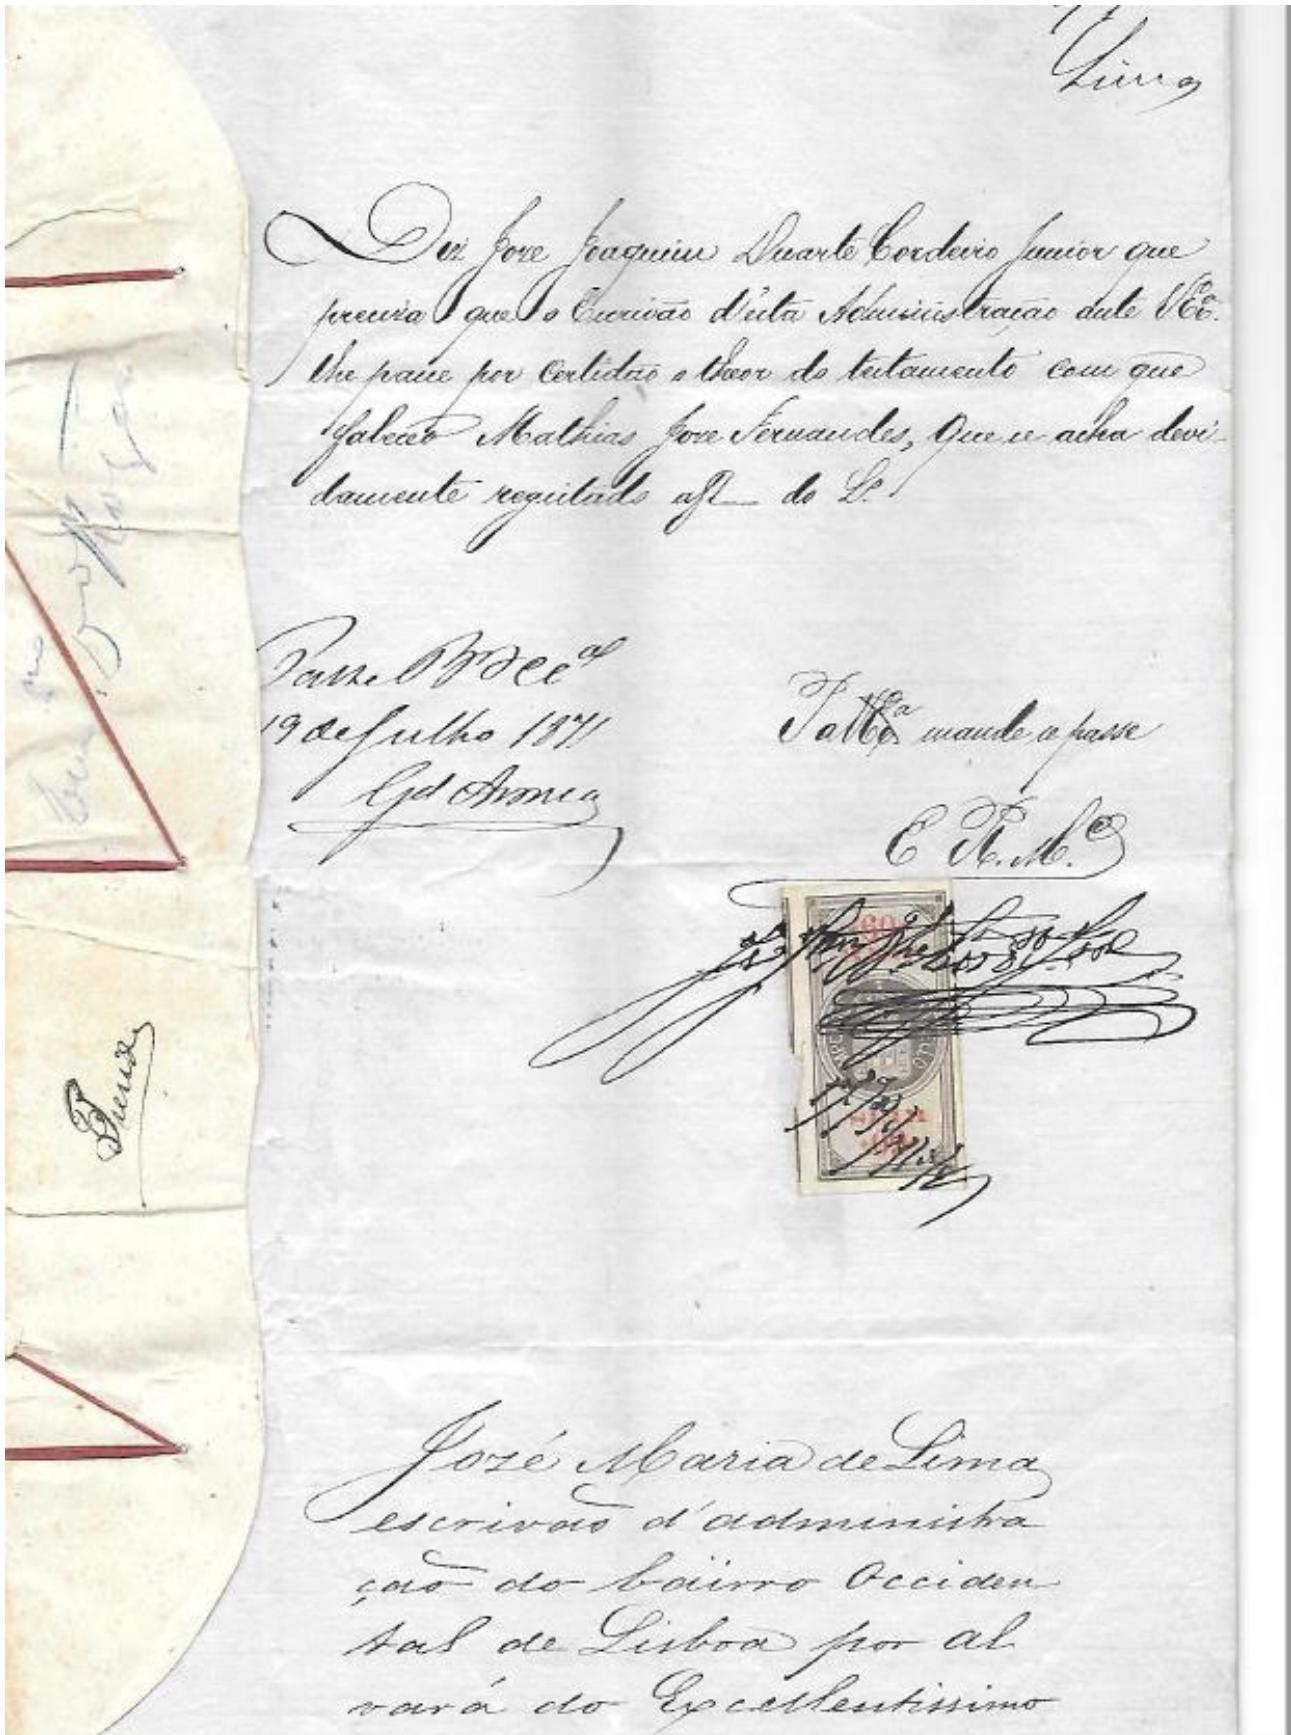 Lima
Diz Joze Joaquim Duarte Cordeiro Junior que
preciza que o Escrivão d'esta Administração ante V Exª.
lhe passe por Certidão o theor do testamento com que
faleceo Mathias Joze Fernandes, que se acha devi-
damente registado a f do Lº
Passe
19 de Julho 1871
P a V Exª mande se passe
E R. M.ce
60
José Maria de Lima
escrivão d'administra
ção do bairro Occiden
tal de Lisboa por al
vará do Excellentissimo